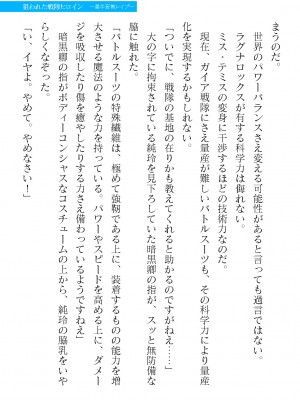 狙われた戦隊ヒロイン
まうのだ。
世界のパワーバランスさえ変える可能性があると言っても過言ではない。
ラグナロックスが有する科学力は侮れない。
ミス・テミスの変身に干渉するほどの技術力なのだ。
現在、ガイア戦隊にさえ量産が難しいバトルスーツも、その科学力により量産
化を実現するかもしれない。
「ついでに、戦隊の基地の在りかも教えてくれると助かるのですがねえ……」
大の字に拘束されている純玲を見下ろしていた暗黒卿の指が、スッと無防備な
脇に触れた。
「バトルスーツの特殊繊維は、極めて強靭である上に、装着するものの能力を増
大させる魔法のような力を持っている。パワーやスピードを高める上に、ダメー
ジを吸収したり傷を癒やしたりする力さえ備わっているようですねえ」
暗黒卿の指がボディーコンシャスなコスチュームの上から、純玲の脇乳をいや
らしくなぞった。
「い、イヤよ。やめて。やめなさい！」